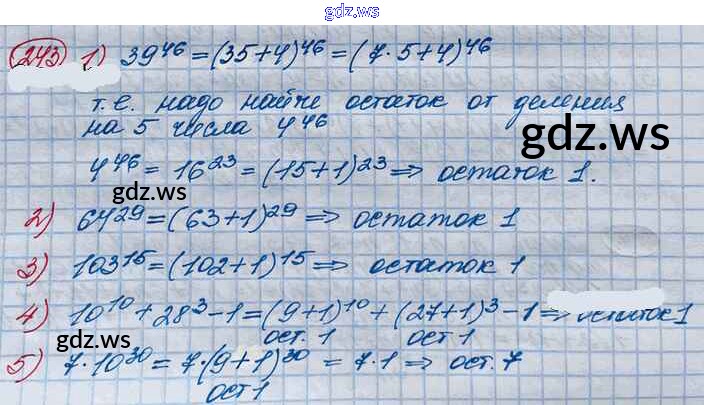 gdz.ws
243 1) 39^46 = (35+4)^46 = (7·5+4)^46
т.е. надо найти остаток от деления
на 5 числа 4^46
gdz.ws
4^46 = 16^23 = (15+1)^23 ⇒ остаток 1.
gdz.ws
2) 64^29 = (63+1)^29 ⇒ остаток 1
3) 103^15 = (102+1)^15 ⇒ остаток 1
4) 10^10 + 28^3 - 1 = (9+1)^10 + (27+1)^3 - 1 ⇒ остаток 1
ост. 1 ост 1
gdz.ws
5) 7·10^30 = 7·(9+1)^30 = 7·1 ⇒ ост. 7
ост 1
gdz.ws